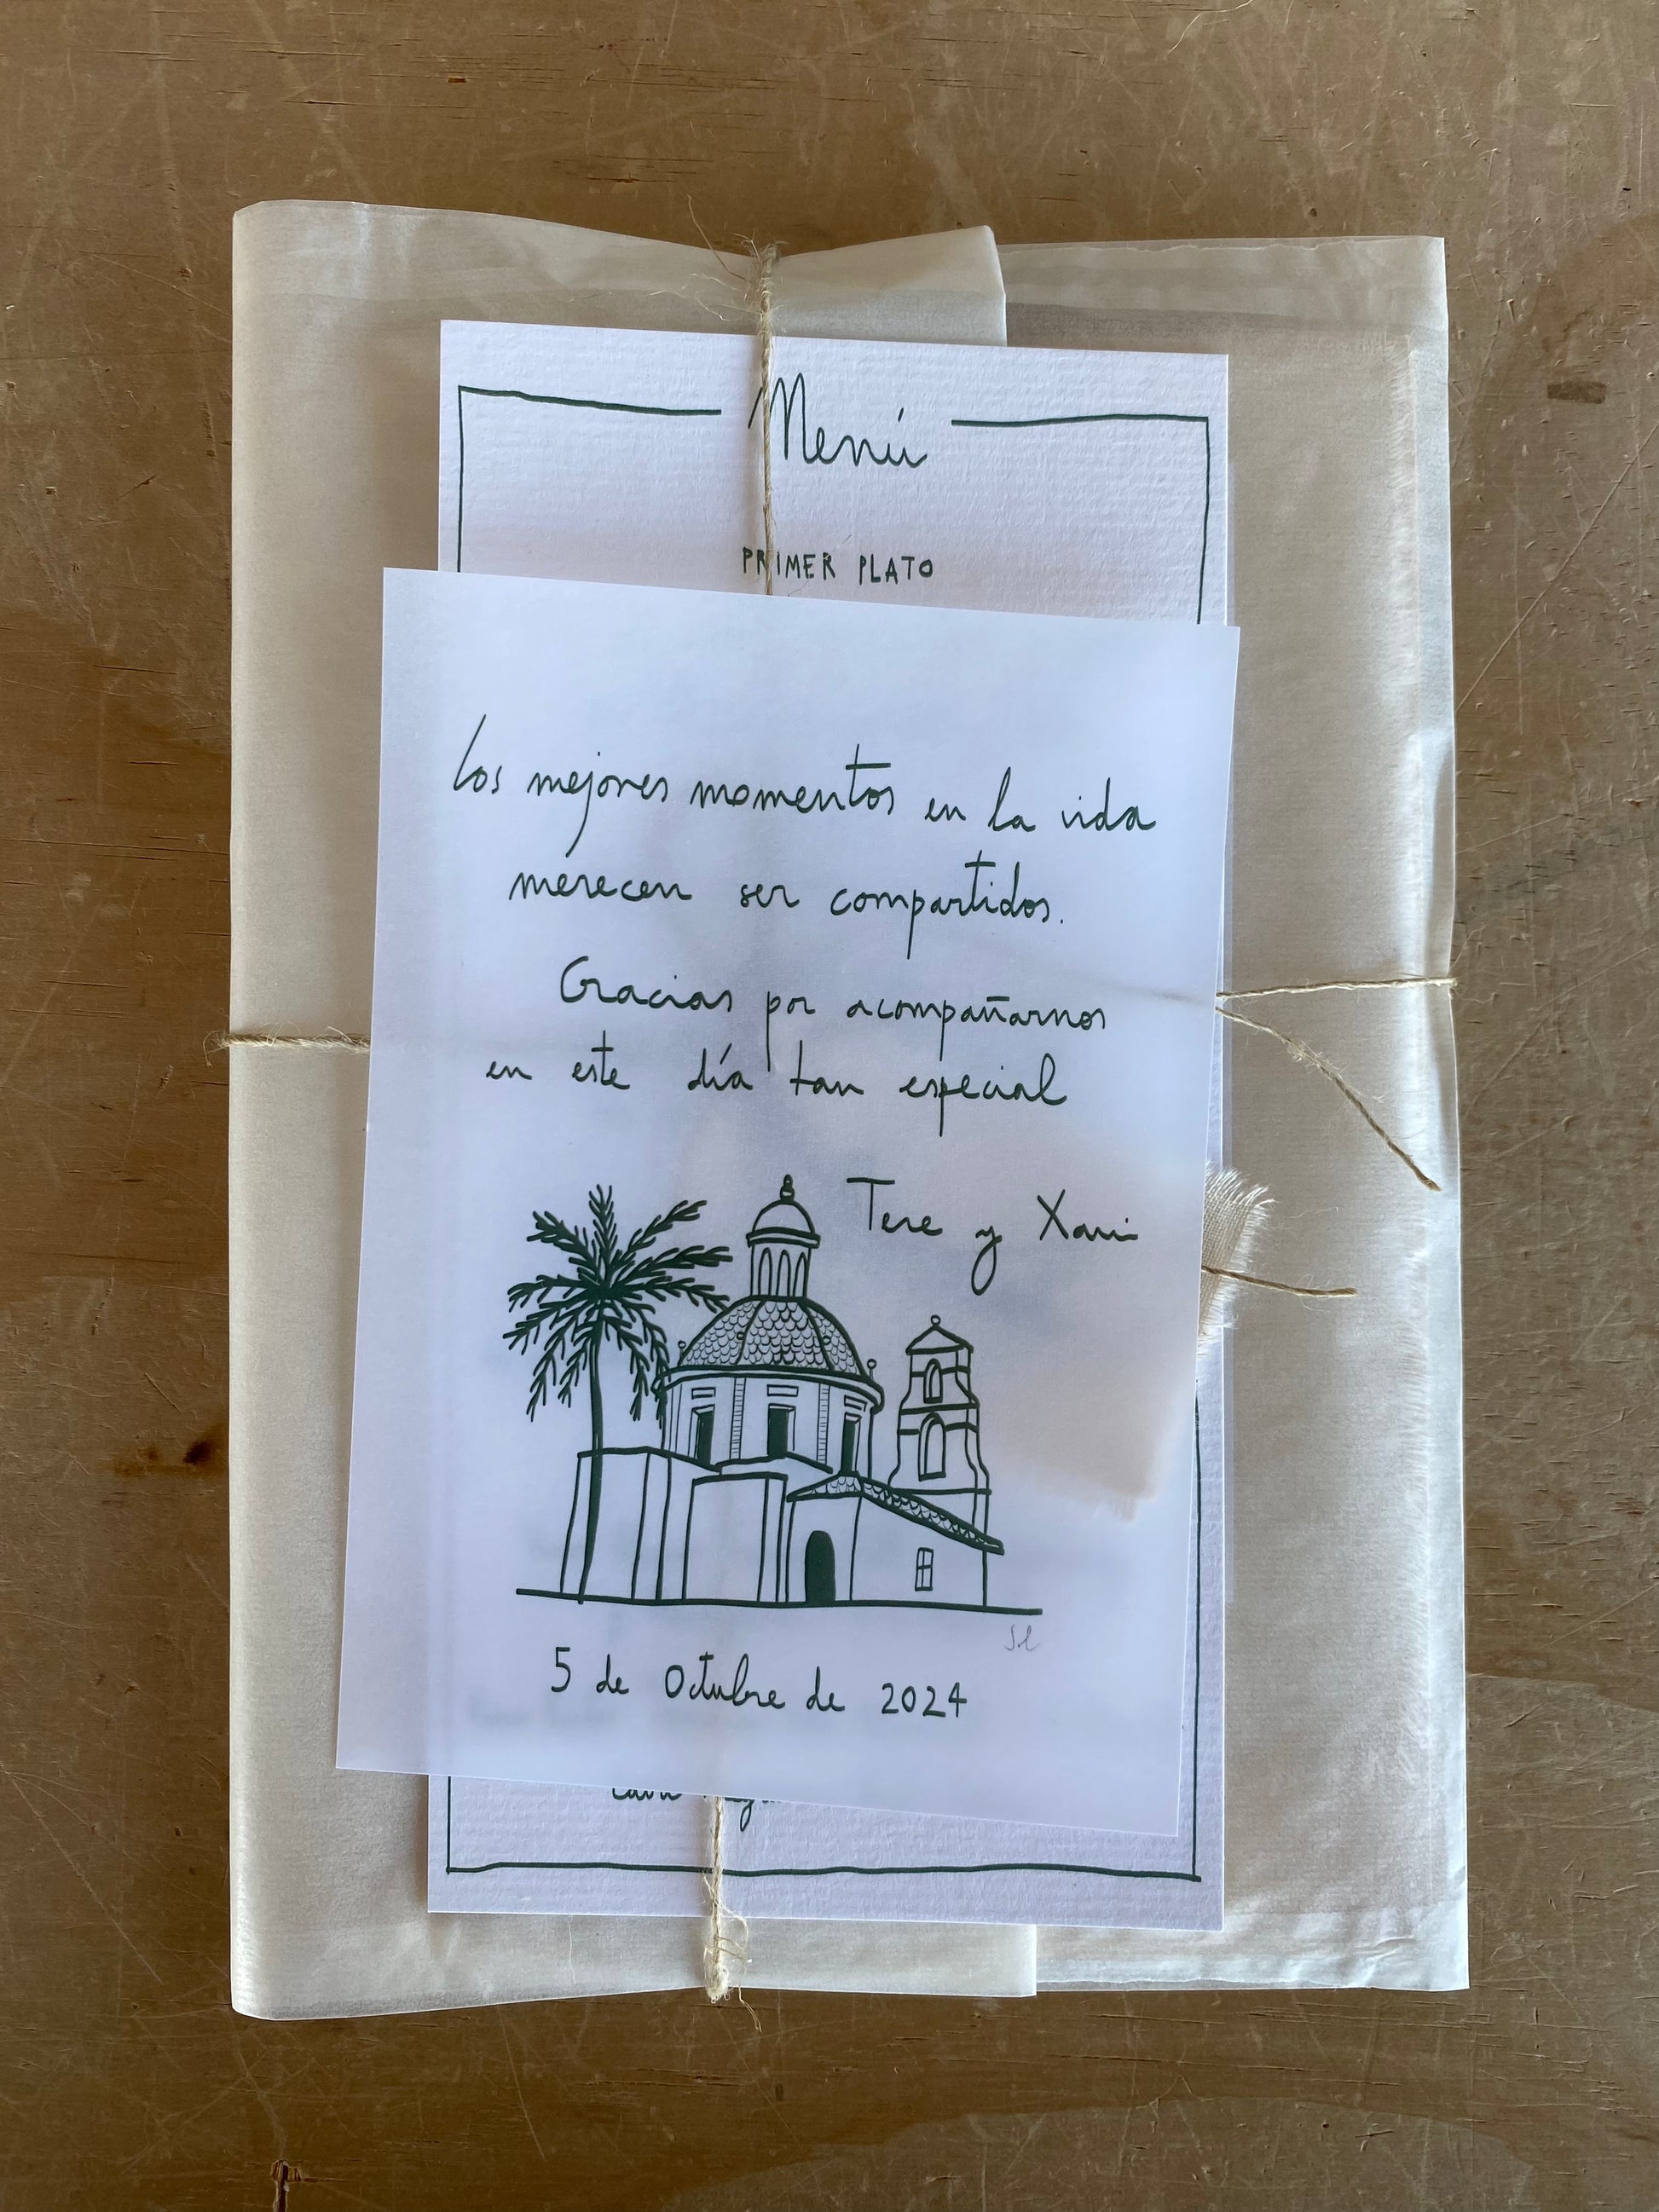 Menú
PRIMER PLATO
Los mejores momentos en la vida
merecen ser compartidos.
Gracias por acompañarnos
en este día tan especial
Tere y Xavi
5 de Octubre de 2024